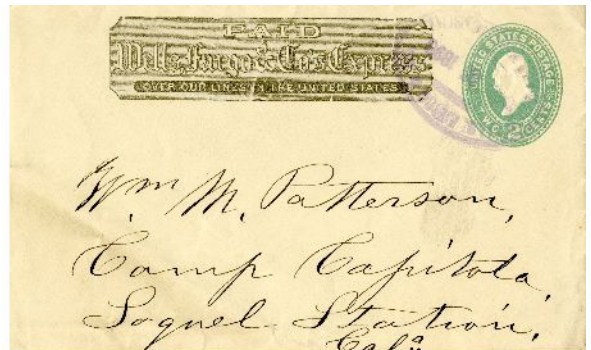 PAID
Wells, Fargo & Co's Express
OVER OUR LINES IN THE UNITED STATES
UNITED STATES POSTAGE
TWO 2 CENTS
Wm M. Patterson,
Camp Capitola,
Soquel Station,
Cala